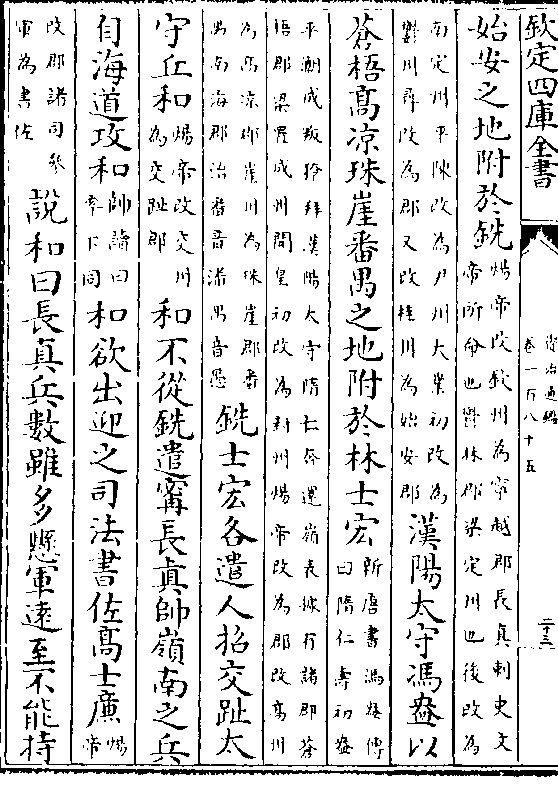 欽定四庫全書
資治通鑑
卷一百八十五
二十三
始安之地附於銑煬帝改欽州為寧越郡長真刺史文帝所命也鬱林郡梁定州也後改為
南定州平陳改為尹州大業初改為鬱州尋改為郡又改桂州為始安郡漢陽太守馮盎以
蒼梧髙凉珠崖番禺之地附於林士宏新唐書馮盎傳曰隋仁壽初盎
平潮成叛獠拜漢陽太守隋亡奔還嶺表據有諸郡蒼梧郡梁置成州開皇初改為封州煬帝改為郡改髙州
為髙凉郡崖州為珠崖郡番禺南海郡治番音潘禺音愚銑士宏各遣人招交趾太
守丘和煬帝改交州為交趾郡和不從銑遣寗長真帥嶺南之兵
自海道攻和帥讀曰率下同和欲出迎之司法書佐髙士廉煬帝
改郡諸司參軍為書佐說和曰長真兵數雖多懸軍逺至不能持